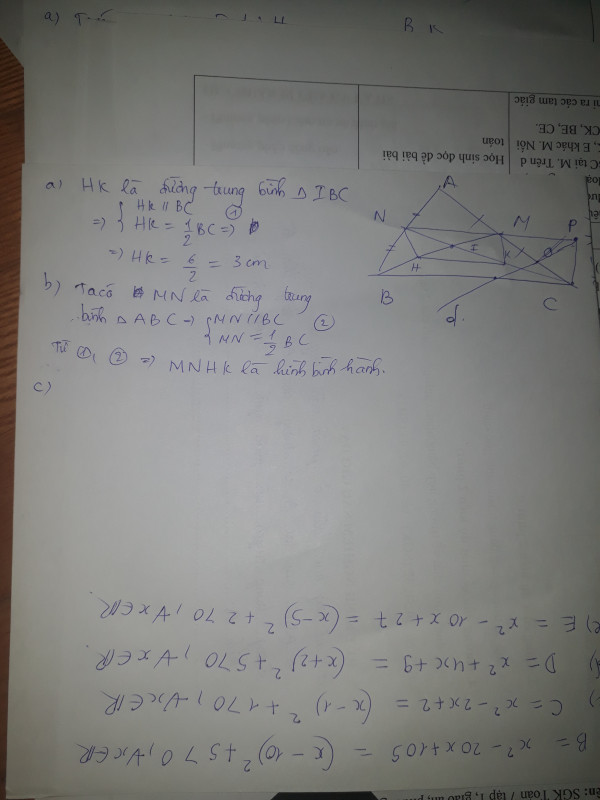 a)
B K
ni ra các tam giác
CK, BE, CE.
E khác M. Nối
C tại M. Trên d
Học sinh đọc đề bài bài
toán
a) HK là đường trung bình Δ IBC
=> { HK // BC
HK = 1/2 BC ① =>
=> HK = 6/2 = 3 cm
b) Ta có MN là đường trung
bình Δ ABC => { MN // BC
MN = 1/2 BC ②
Từ ①, ② => MNHK là hình bình hành.
c)
A
N
M
P
I
K
H
O
B
C
d.
B = x² - 20x + 105 = (x - 10)² + 5 > 0, ∀x∈R
) C = x² - 2x + 2 = (x - 1)² + 1 > 0, ∀x∈R
) D = x² + 4x + 9 = (x + 2)² + 5 > 0, ∀x∈R
e) E = x² - 10x + 27 = (x - 5)² + 2 > 0, ∀x∈R
SGK Toán 7 tập 1, giáo án,